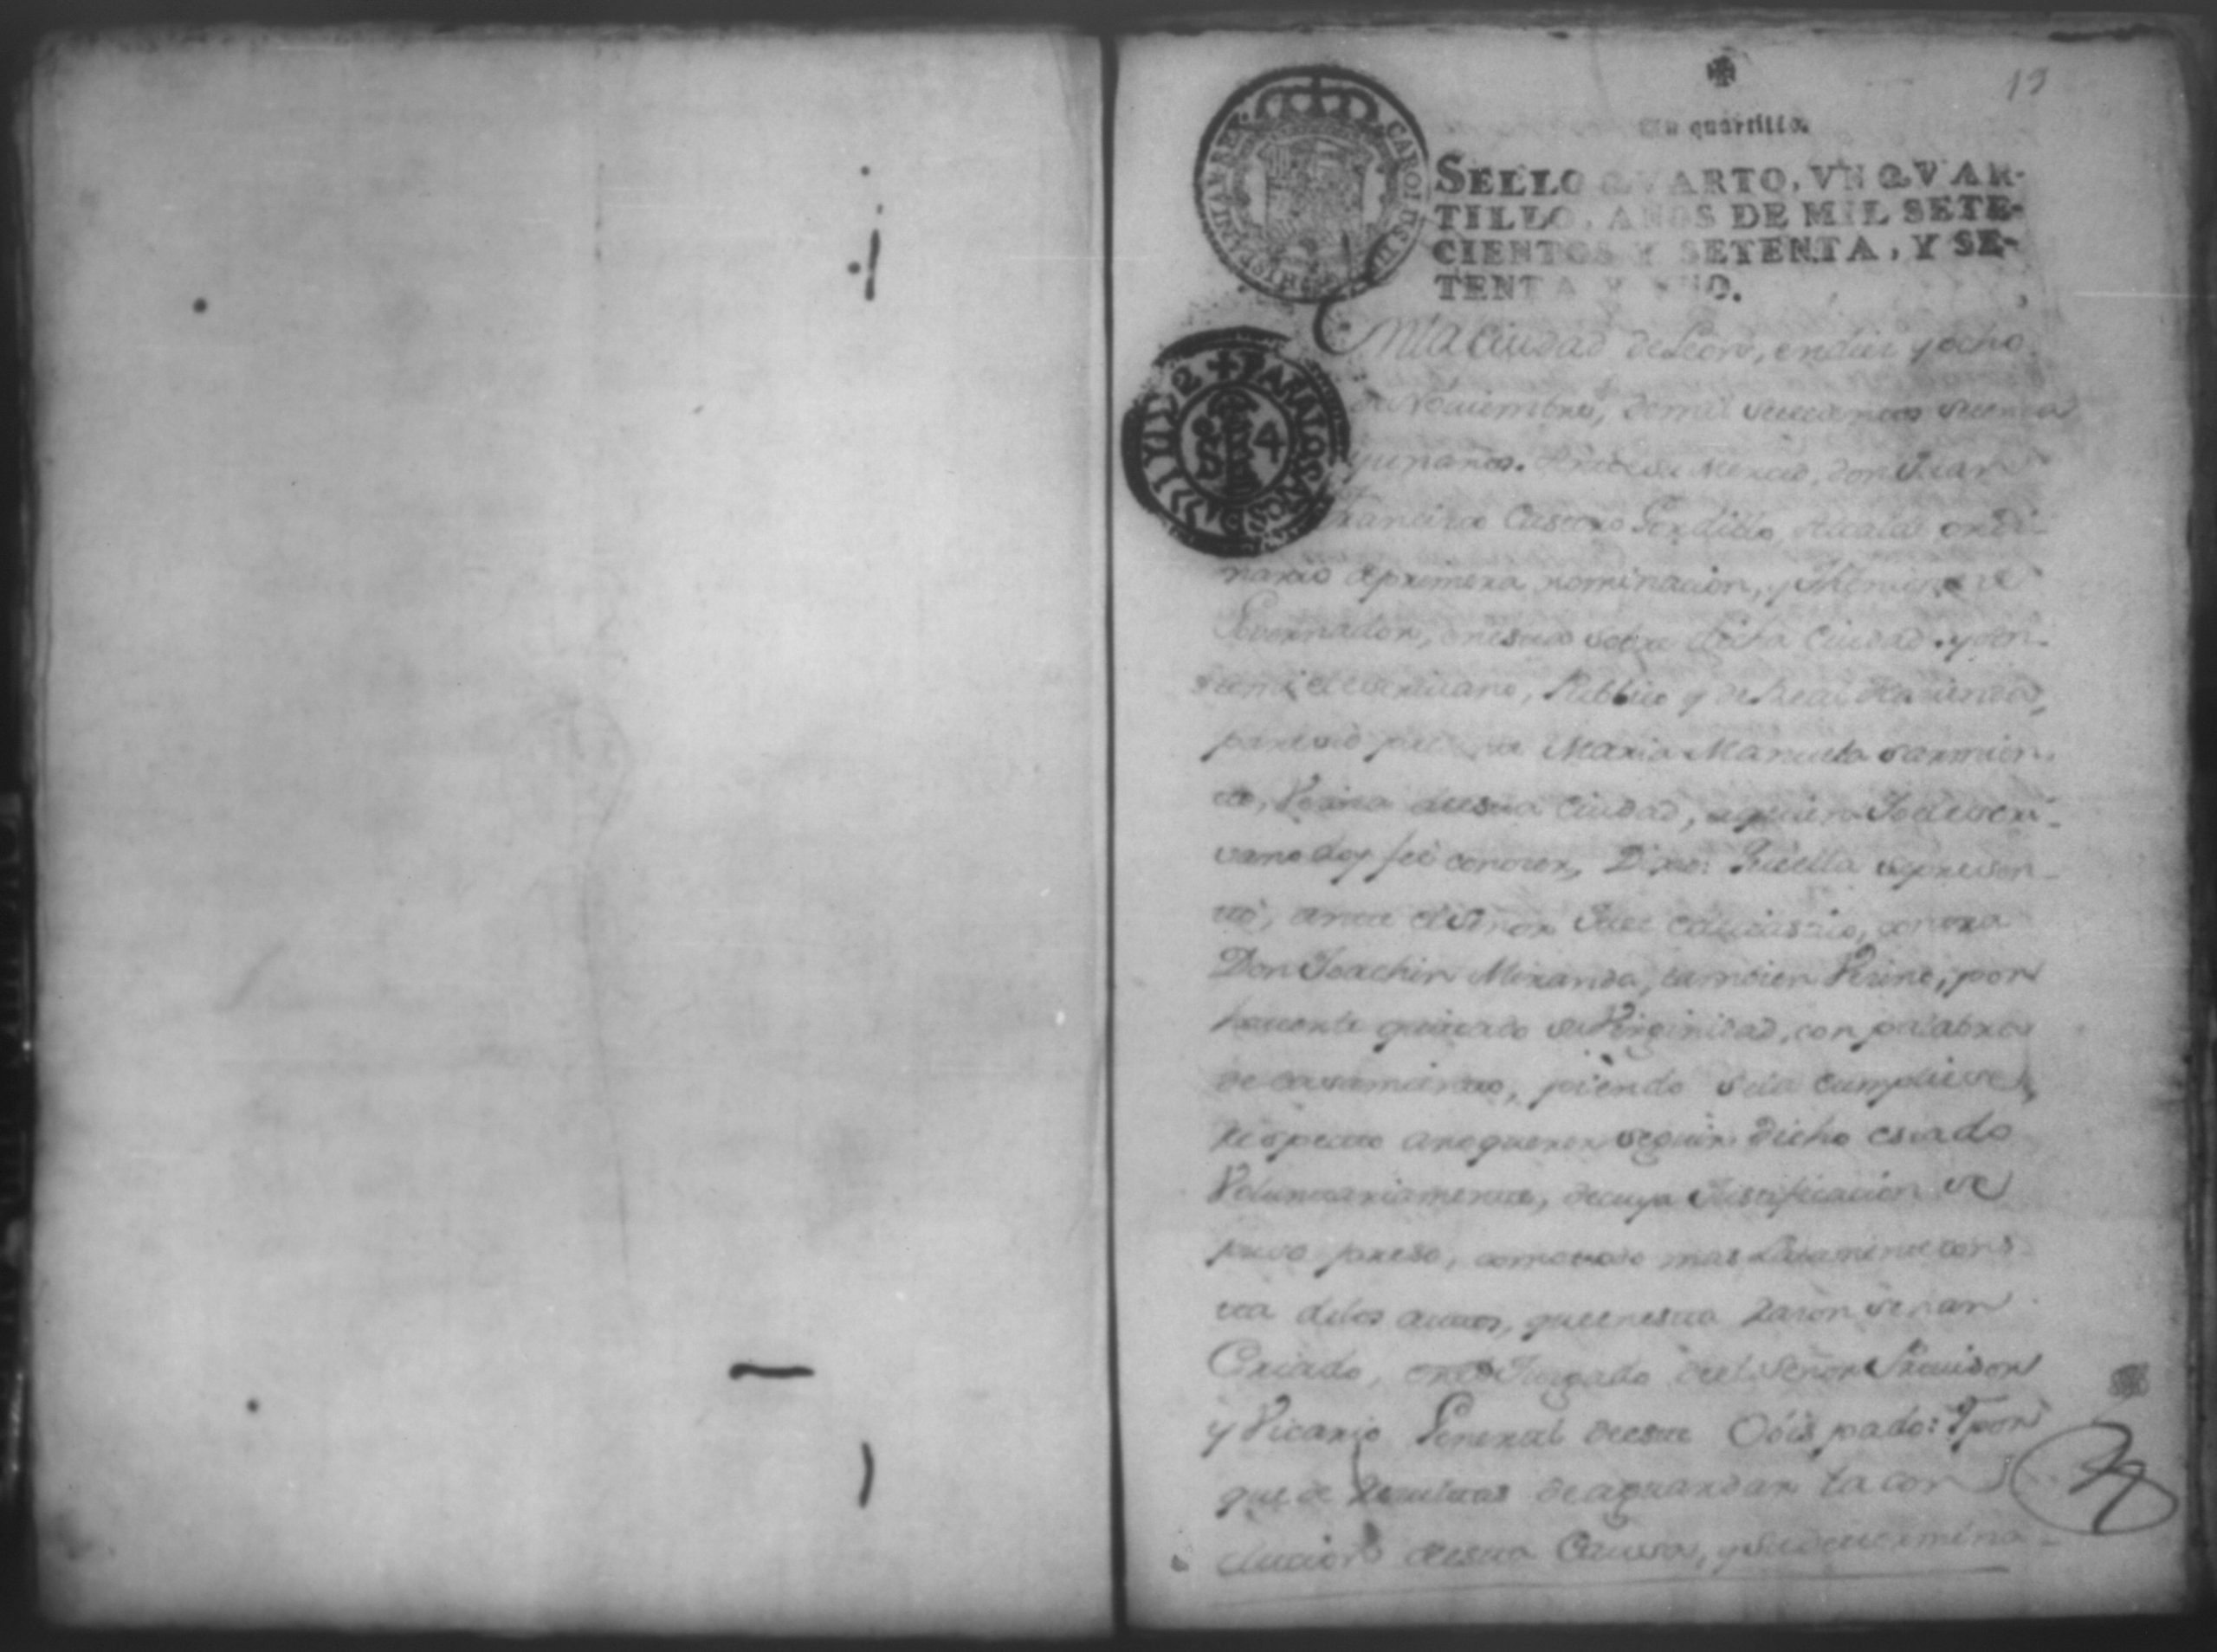 19
Un quartillo.
SELLO QVARTO, VN QVAR-
TILLO, AÑOS DE MIL SETE-
CIENTOS Y SETENTA, Y SE-
TENTA Y VNO.
CAROLUS III
HISPANIAR REX
PARA LOS AÑOS D
4
En la Ciudad de Leon, en diez y ocho
de Nouiembre, de mil setecientos setenta
y un años. Ante su Merced, Don Juan
Francisco Castro Gordillo, Alcalde ordi-
nario de primera nominacion, y Theniente de
Governador, en esta dicha Ciudad. y por
ante mi el escriuano, Publico y de Real Hacienda,
parecio presente Maria Manuela Sarmien-
to, Vecina de esta Ciudad, a quien Yo el escri-
vano doy feé conocer, Dixo: Que ella se presen-
tó, ante el Señor Juez eclesiastico, contra
Don Joachin Miranda, tambien Vecino, por
hauerle quitado su Virginidad, con palabra
de casamiento, pidiendo se la cumpliese,
respecto a no querer seguir dicho estado
Voluntariamente, de cuya Justificacion se
puso preso, como todo mas Latamente cons-
ta de los autos, que en esta razon se han
Criado, en el Juzgado del Señor Prouisor
y Vicario General de este Obispado: Y por
que de Resultas de aguardar la con
clucion de esta Caussa, y su determina-